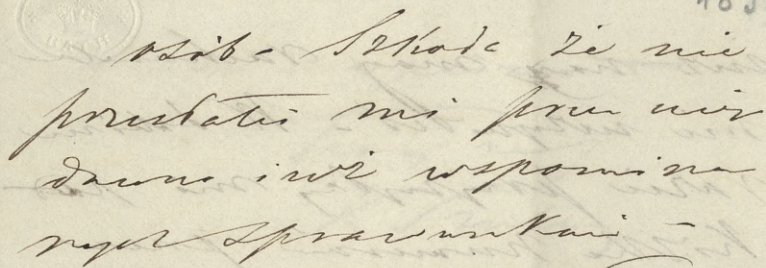 osób – Szkoda że nie
przesłałeś mi przez niż
dawno i już wspomina
nych sprawunków –